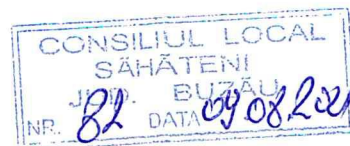 CONSILIUL LOCAL
SĂHĂTENI
JUD. BUZĂU
NR. 82 DATA 09 08 2021